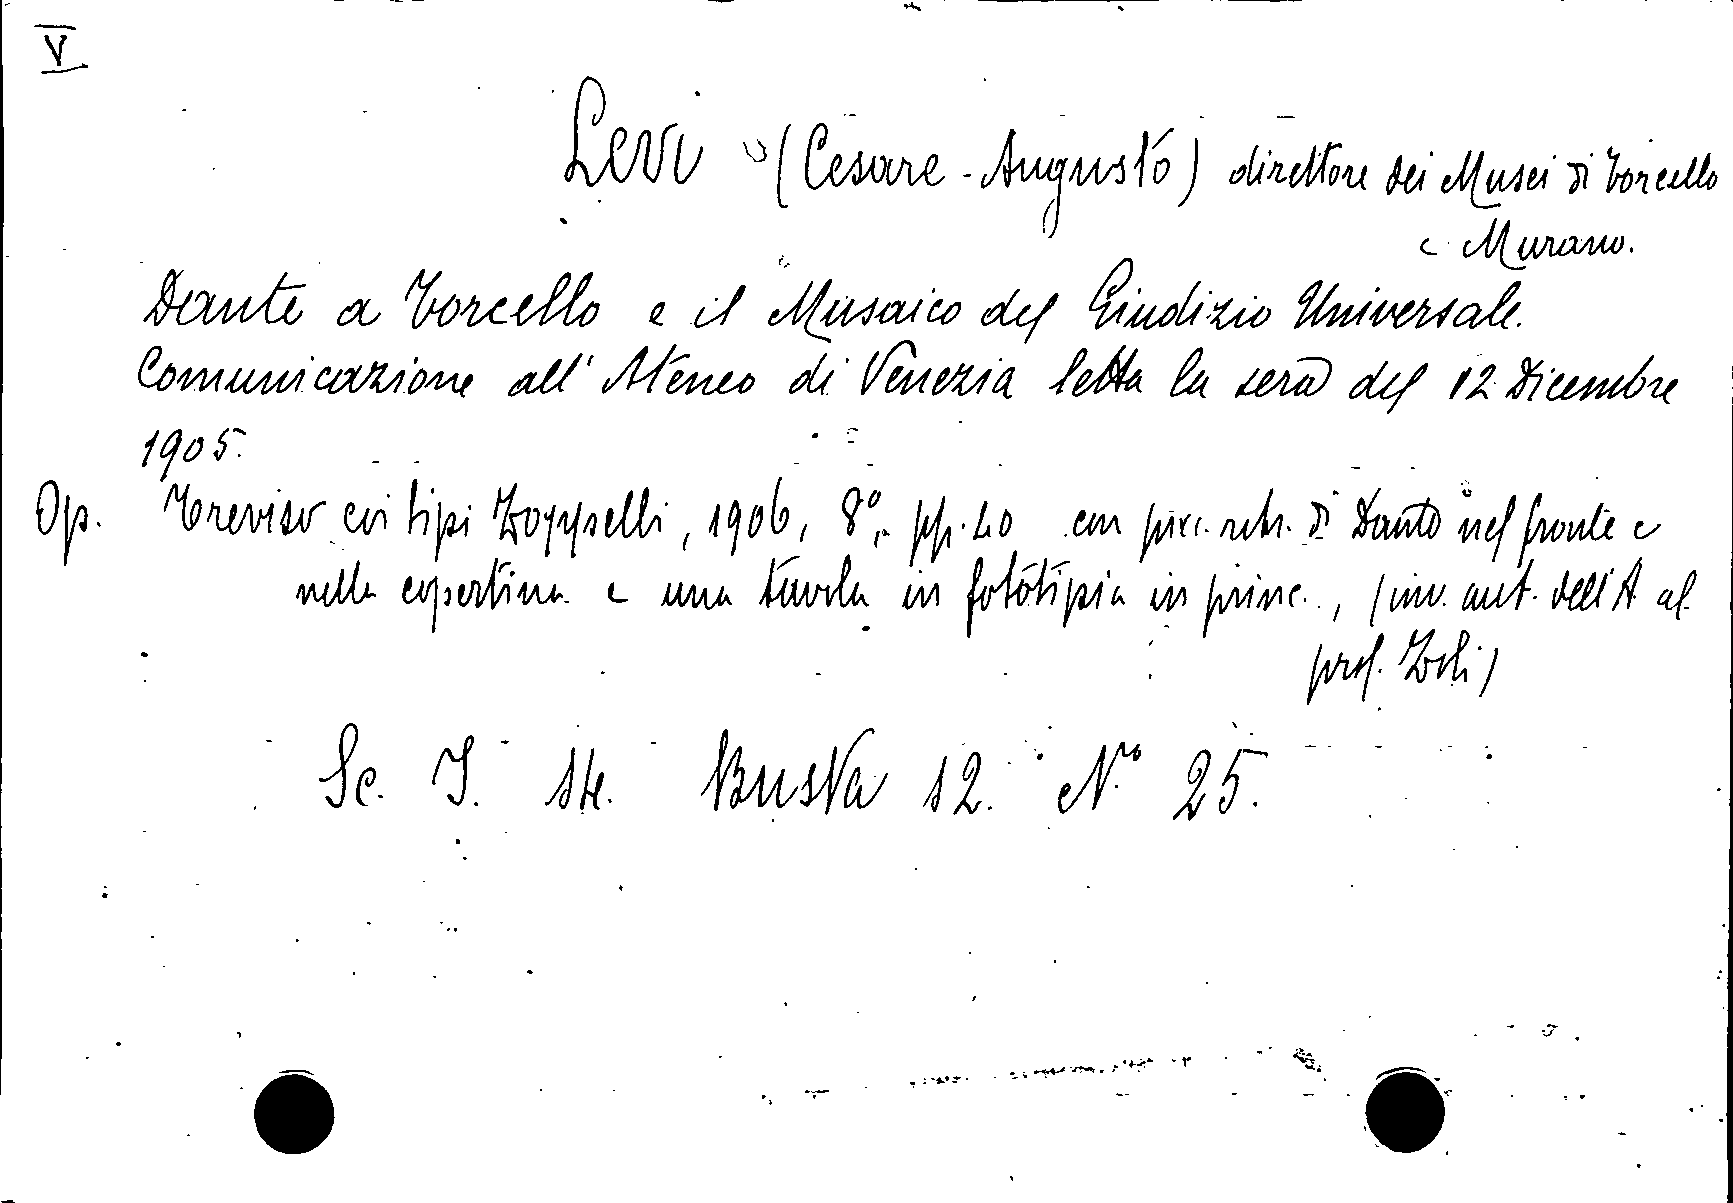 V
Levi (Cesare-Augusto) direttore dei Musei di Torcello
e Murano.
Dante a Torcello e il Musaico del Giudizio Universale.
Comunicazione all'Ateneo di Venezia letta la sera del 12 Dicembre
1905.
Op. Treviso coi tipi Zoppelli, 1906, 8º, pp. 40 con picc. ritr. di Dante nel fronte e
nella copertina e una tavola in fototipia in princ., (inv. aut. dell'A al
prof. Zoli)
Sc. I. 14. Busta 12. N.ro 25.